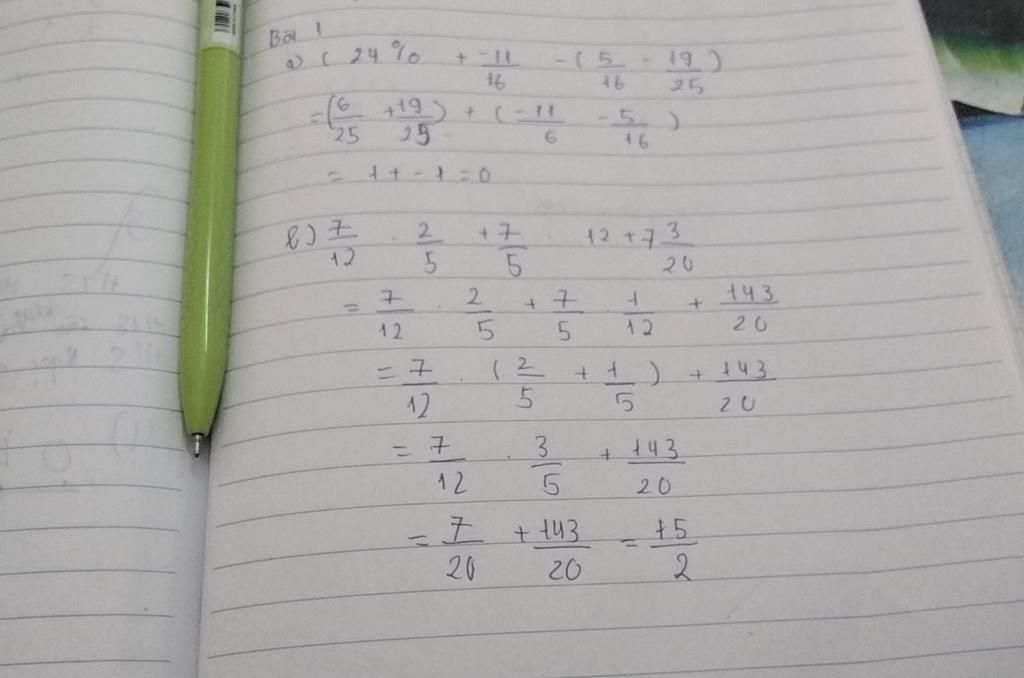 Bài 1
a) ( 24% + -11/16 - ( 5/16 - 19/25 )
= ( 6/25 + 19/25 ) + ( -11/6 - 5/16 )
= 1 + - 1 = 0
b) 7/12 . 2/5 + 7/5 . 12 + 7 3/20
= 7/12 . 2/5 + 7/5 . 1/12 + 143/20
= 7/12 . ( 2/5 + 1/5 ) + 143/20
= 7/12 . 3/5 + 143/20
= 7/20 + 143/20 = 15/2